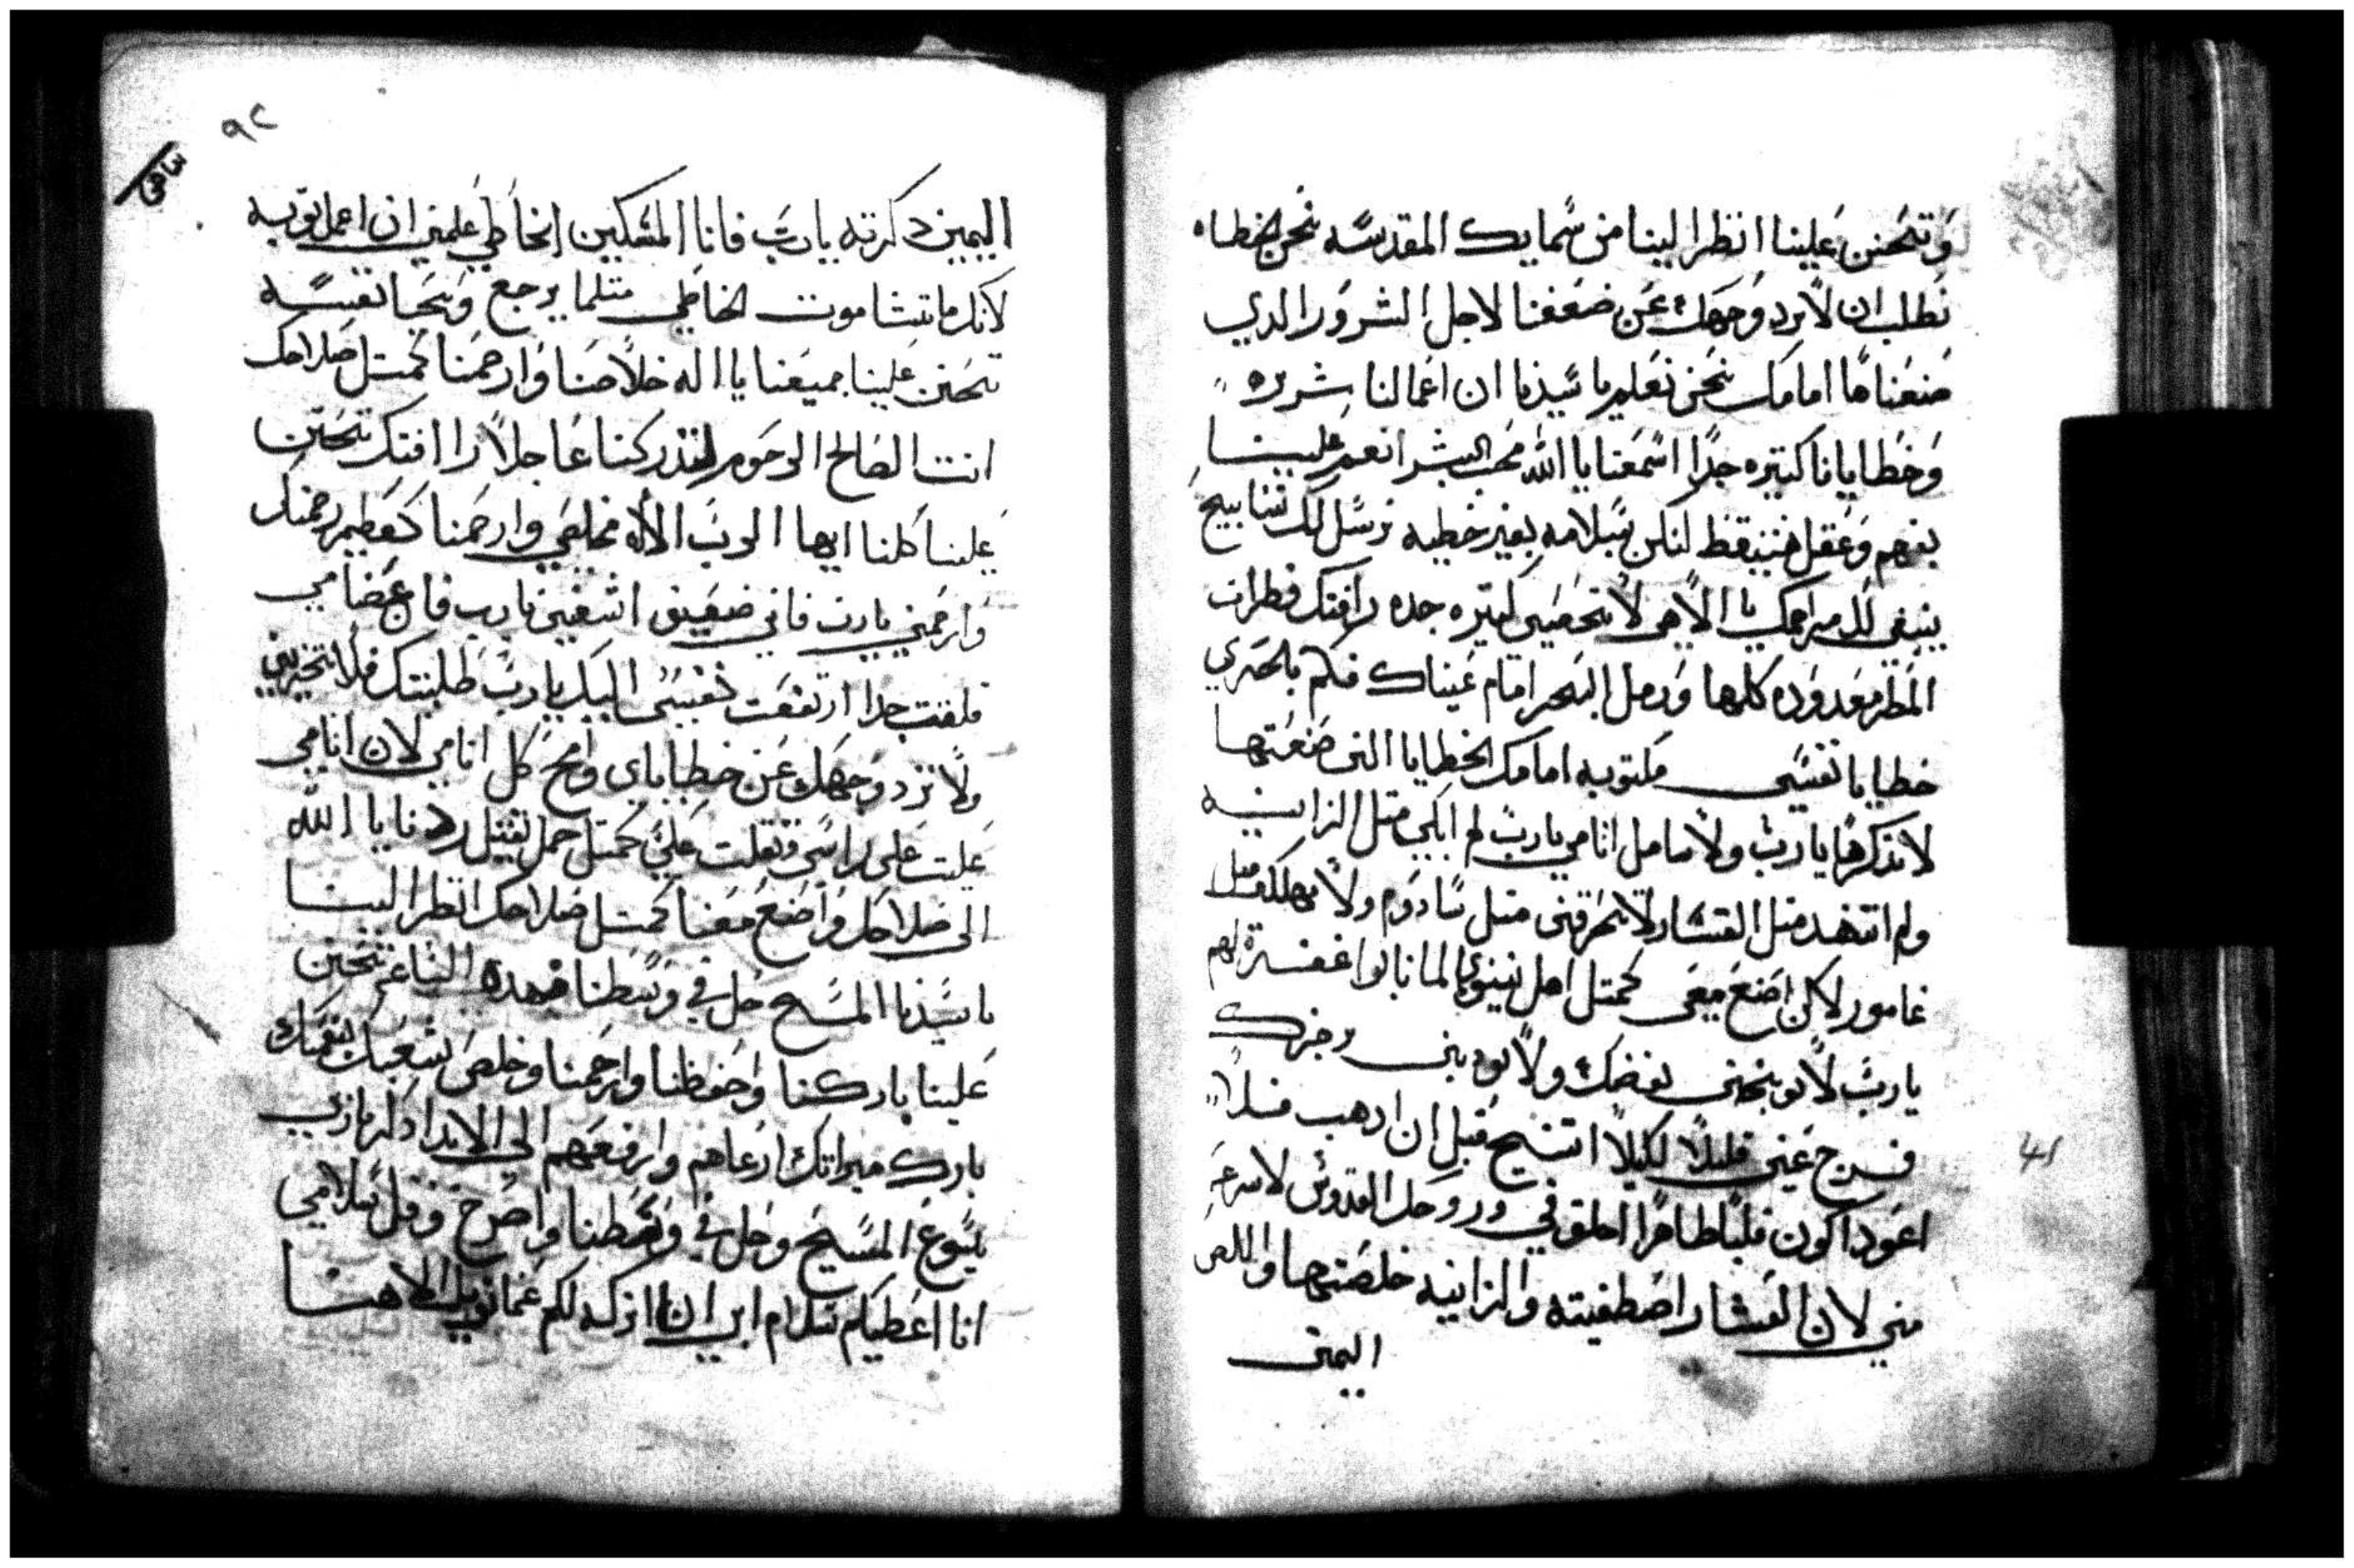 وتتحنن علينا انظر الينا من سمايك المقدسه نحن الخطاه
نطلب ان لا ترد وجهك عن ضعفنا لاجل الشرور الدي
صنعناها امامك نحن نعلم يا سيدنا ان اعمالنا شريره
وخطايانا كتيره جدا اسمعنا يا الله محب البشر انعم علينا
بفهم وعقل متيقظ لنكن بسلامه بغير خطيه نرسل لك تسابيح
ينبغي لك مراحمك يا الاهي لا تحصي كتيره جده رافتك قطرات
المطر معدوده كلها ورمل البحر امام عيناك فكم بلحري
خطايا نفسي مكتوبه امامك الخطايا التي صنعتها
لا تذكرها يارب ولا تتامل اتامي يارب لم ابكي متل الزانيه
ولم اتنهد متل العشار لا تحرقني متل سادوم ولا تهلكني متل
غامور لاكن اصنع معي كمتل اهل نينوي لما تابوا غفرت لهم
يارب لا توبخني بغضبك ولا تودبني برجزك
فرج عني قليلا لكيلا اتنيح قبل ان ادهب فلا
اعود اكون قلبا طاهرا اخلق في وروحك القدوس لا تنزعه
مني لان العشار اصطفيته والزانيه خلصتها واللص
اليمين
٩٢
اليمين دكرته يارب فانا المسكين الخاطي علمني ان اعمل توبه
لانك ما تشا موت الخاطي متلما يرجع وتحيا نفسه
تحنن علينا جميعنا يا اله خلاصنا وارحمنا كمتل صلاحك
انت الصالح الرحوم لتدركنا عاجلا رافتك تحنن
علينا كلنا ايها الرب الاله مخلصي وارحمنا كعظيم رحمتك
وارحمني يارب فاني ضعيف اشفيني يارب فان عضامي
قلقت جدا ارتفعت نفسي اليك يارب طلبتك فلا تخزيني
ولا ترد وجهك عن خطاياي وامح كل اتامي لان اتامي
علت على راسي وتقلت علي كمتل حمل تقيل ردنا يا الله
الى صلاحك واصنع معنا كمتل صلاحك انظر الينا
يا سيدنا المسيح حل في وسطنا في هده الساعه تحنن
علينا باركنا واحفظنا وارحمنا وخلص شعبك بنعمتك
بارك ميراتك ارعاهم وارفعهم الي الابد ادكرنا ربي
يسوع المسيح وحل في وسطنا واصرخ وقل سلامي
انا اعطيكم سلام ابي انا اتركه لكم عمانوييل الاهنا